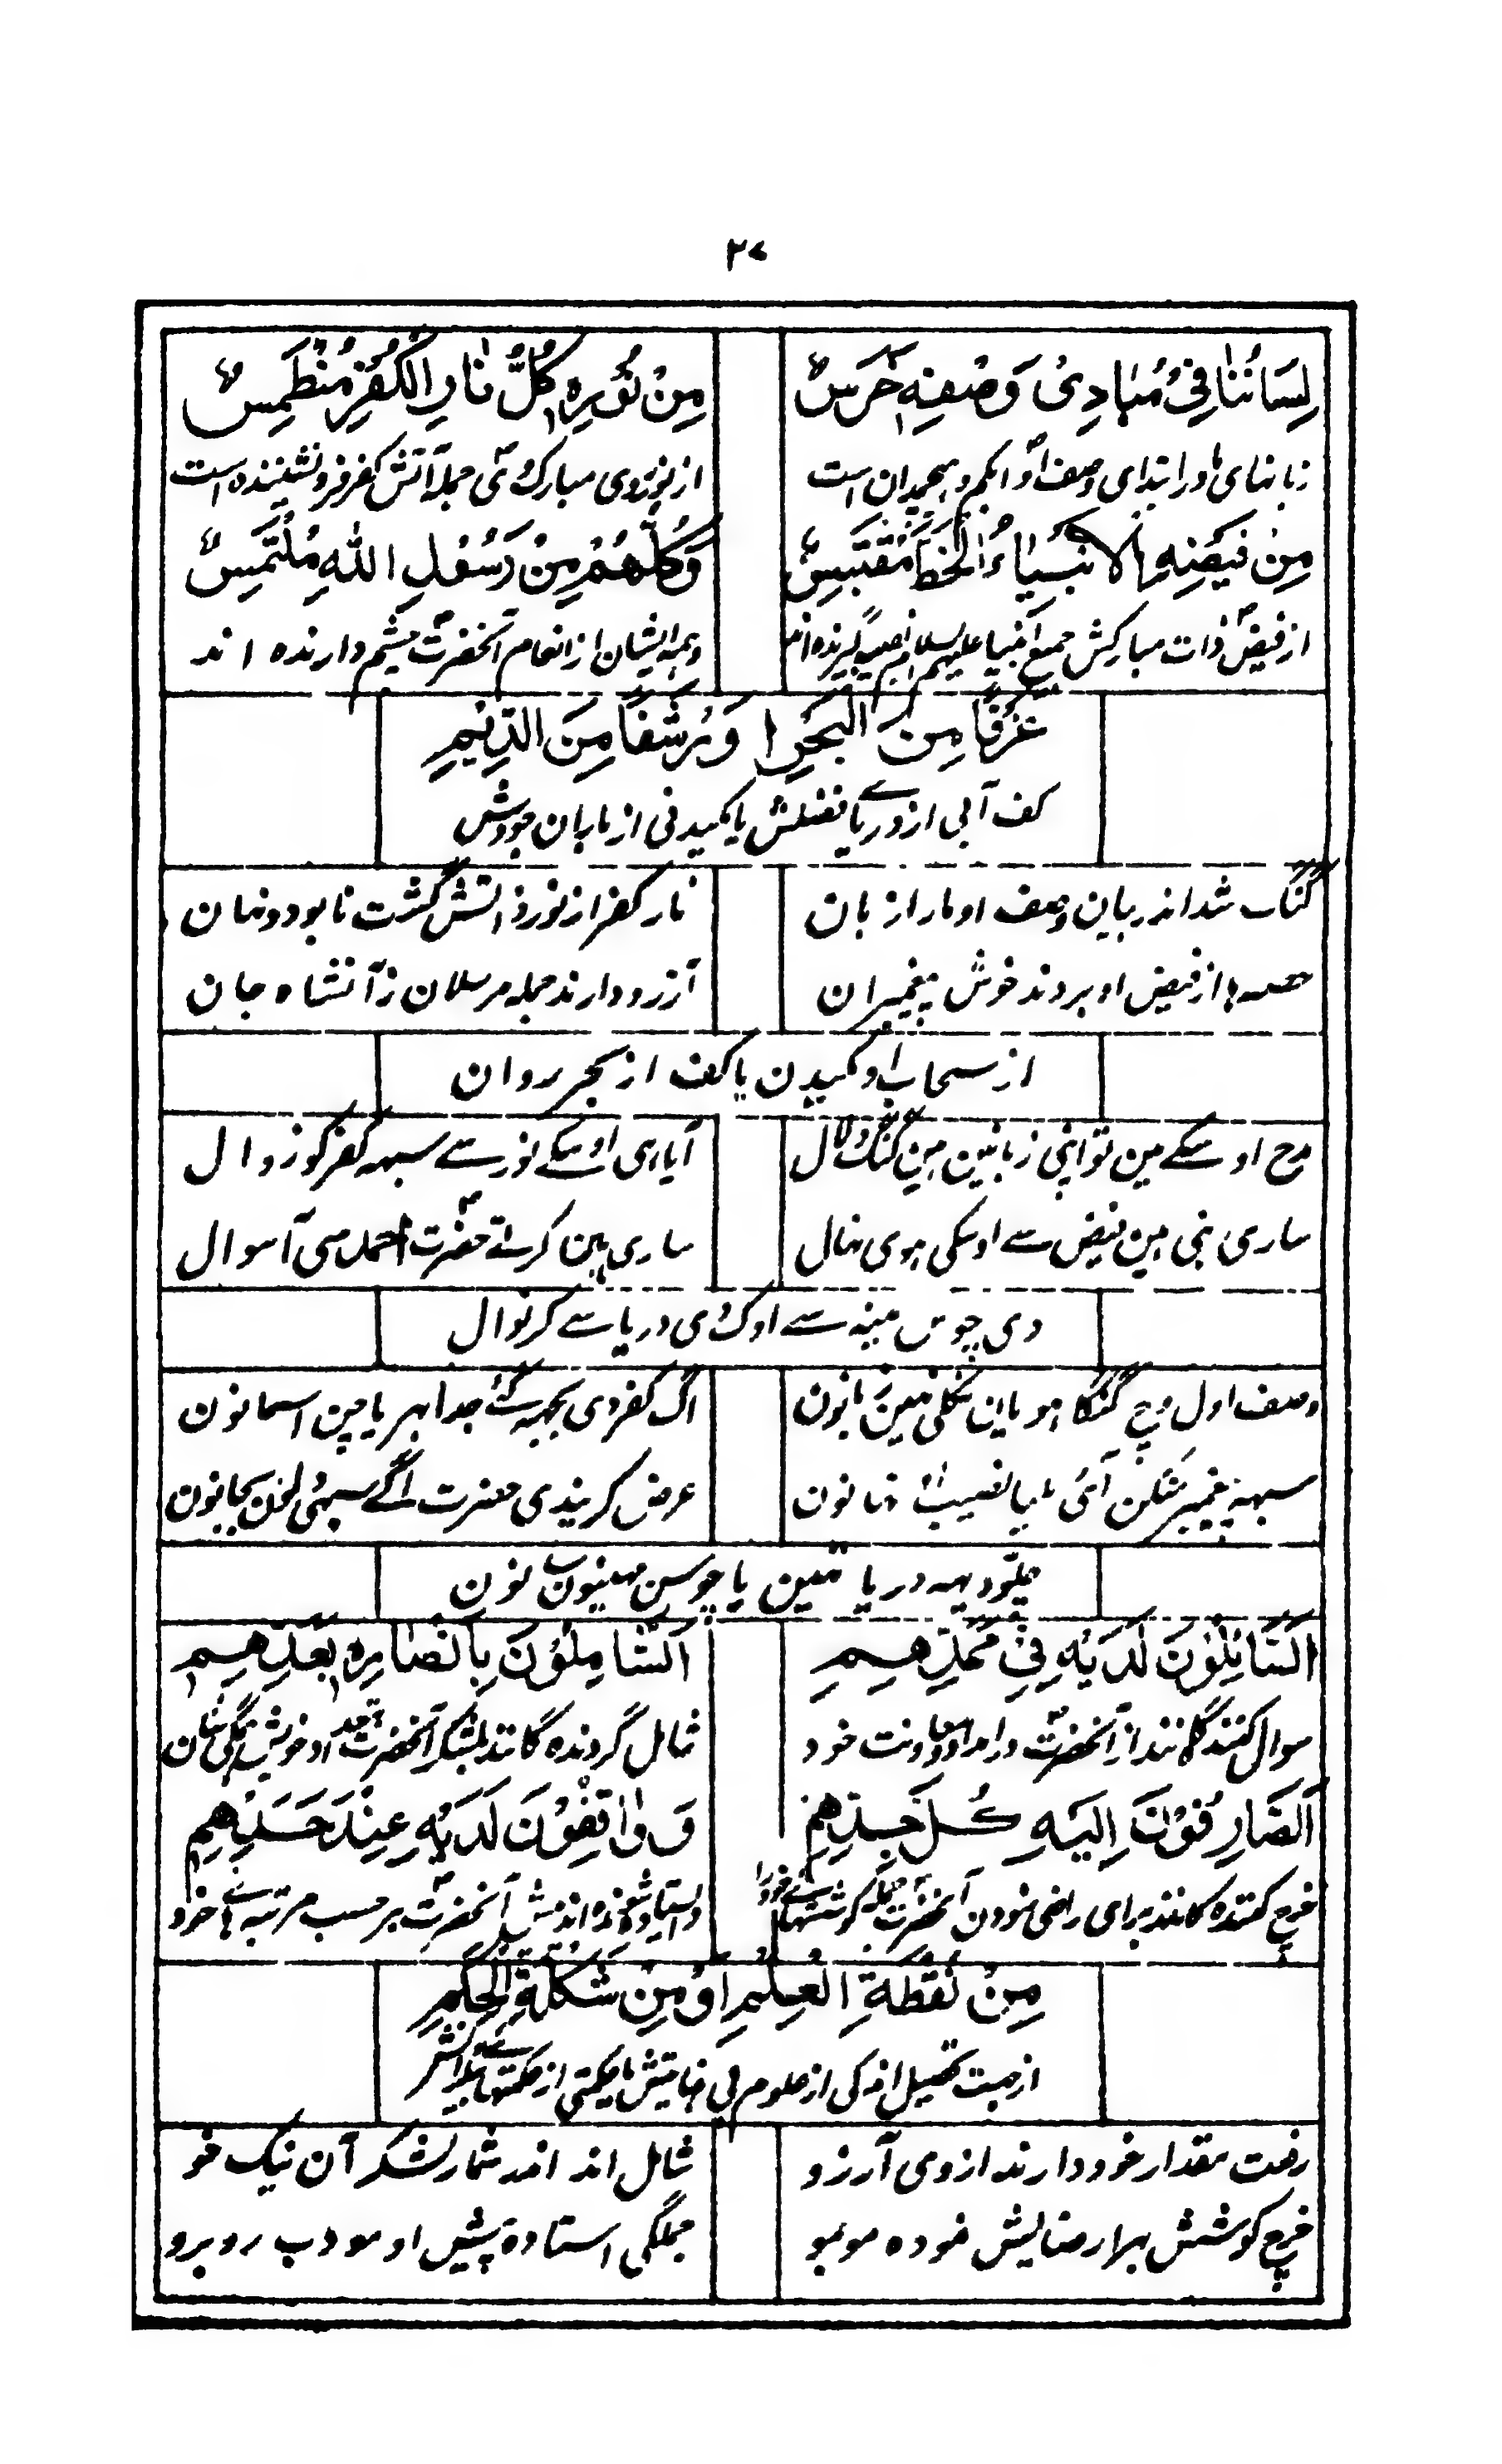 ٢٧
لِسَانُنَا فِيْ مُبَادِيْ وَصْفِهٖ خَرَسٌ
مِنْ نُوْرِهٖ كُلُّ نَارِ الْكُفْرِ مُنْطَمِسٌ
زبانهای ما در ابتدای وصف او ابکم و هیچمدان است
از نور روی مبارک وی جمله آتش کفر فرو نشیننده است
مِنْ فَيْضِهِ الْأَنْبِيَاءُ الْحَظَّ مُقْتَبِسٌ
وَكُلُّهُمْ مِنْ رَسُوْلِ اللهِ مُلْتَمِسٌ
از فیض ذات مبارکش جمیع انبیا علیهم السلام نصیب گیرنده اند
وهمه ایشان از انعام آنحضرت چشم دارنده اند
غَرْفًا مِنَ الْبَحْرِ اَوْ رَشْفًا مِنَ الدِّيَمِ
کف آبی از دریای فضلش یا مکیدنی از باران جودش
گنگ شد اندر بیان وصف او مارا زبان
نار کفر از نور ذاتش گشت نابود و نهان
حصه ها از فیض او بردند خوش پیغمبران
آرزو دارند جمله مرسلان زآنشاه جان
از سحاب او مکیدن یا کف از بحر روان
مدح اوسکے مین تو اپنی زبانین هین گنگ و لال
آیا هی اوسکے نور سے سبهه کفر کو زوال
ساری نبی هین فیض سے اوسکی هوی نهال
ساری هین کرتے حضرت احمد سی آ سوال
دی چوس مینه سے اوک دریا سے کر نوال
وصف اول وچ گنگا هویا
اگ کفر دی بجهه گئے
اسمانون
سبهه پیغمبر
عرض کریندی حضرت اگے سبهئی
دریا یا چوسن
اَلسَّائِلُوْنَ لَدَيْهِ فِيْ مَمَدِّهِمِ
اَلشَّامِلُوْنَ بِاَنْصَارِهٖ بِعَدِّهِمِ
سوال کنندگانند از آنحضرت در امداد و معاونت خود
شامل گردنده گانند بلشکر آنحضرت
اَلصَّارِفُوْنَ اِلَيْهِ كُلَّ جِدِّهِمِ
وَ وَاقِفُوْنَ لَدَيْهِ عِنْدَ حَدِّهِمِ
خرچ کننده گانند برای راضی نمودن آنحضرت جمله کوششهای خود را
وایستاده شونده اند پیش آنحضرت بر حسب مرتبه های خود
مِنْ نُقْطَةِ الْعِلْمِ اَوْ مِنْ شَكْلَةِ الْحِكَمِ
از جهت تحصیل اندکی از علوم بی نهایتش یا حکمتی از حکمتهای
رفعت مقدار خود دارند از وی آرزو
شامل اند اندر شمار لشکر آن نیک خو
خرچ کوشش بهر ارضایش نموده موبمو
جملگی استاده پیش او مودب روبرو